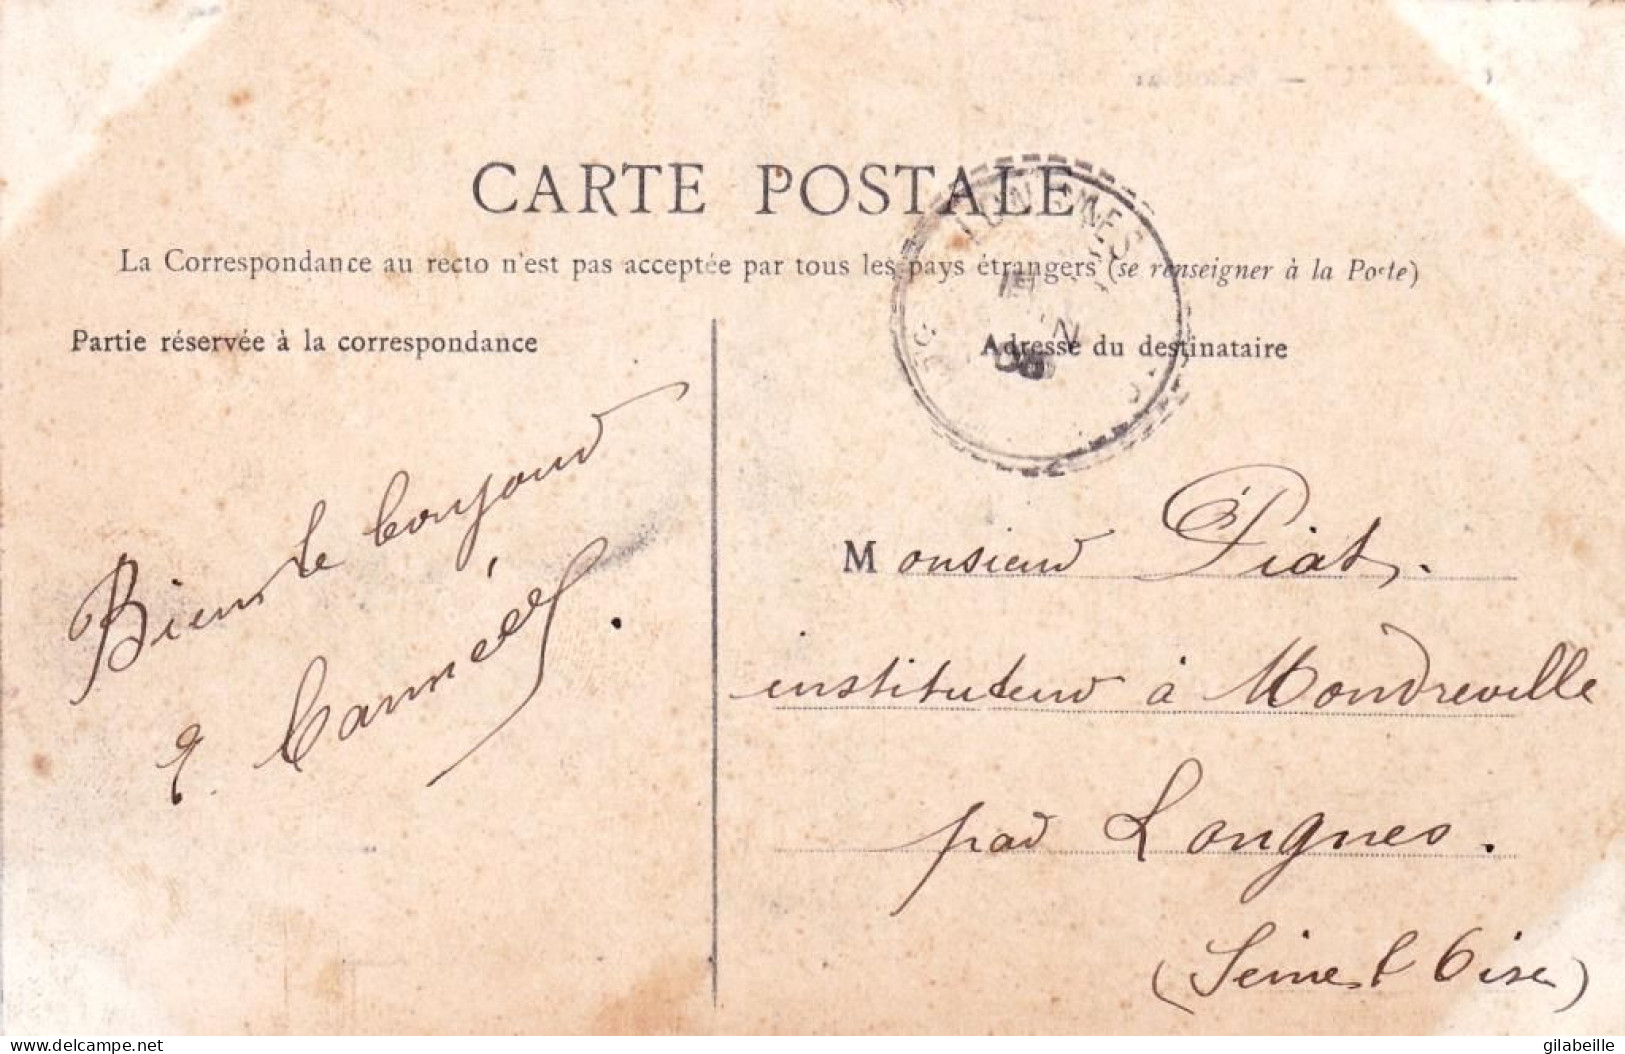 CARTE POSTALE
La Correspondance au recto n'est pas acceptée par tous les pays étrangers (se renseigner à la Poste)
Partie réservée à la correspondance
Adresse du destinataire
Bien le bonjour
Monsieur Piat.
instituteur à Mondreville
par Longnes.
(Seine & Oise)
delcampe.net
gilabeille